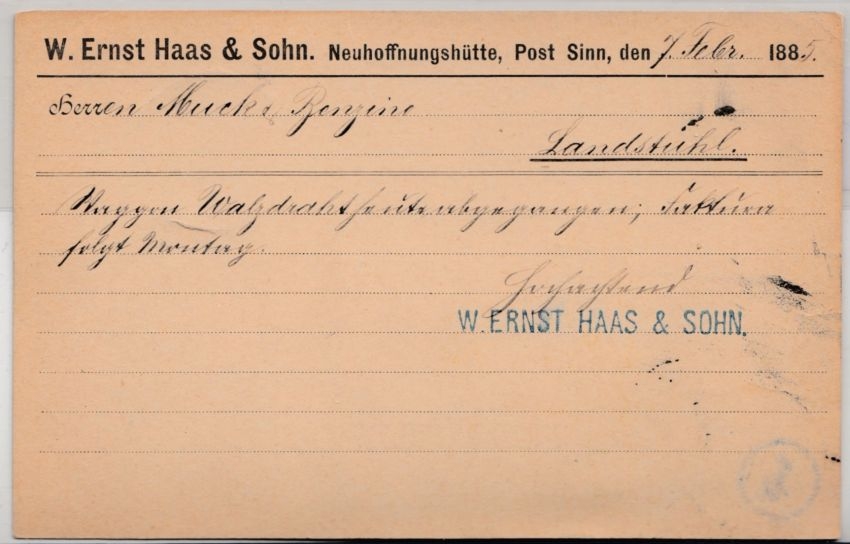 W. Ernst Haas & Sohn. Neuhoffnungshütte, Post Sinn, den 7. Febr. 1885.
Herren Muck & Benzino
Landstuhl.
Waggon Walzdraht heute abgegangen; Faktura
folgt Montag.
Hochachtend
W. ERNST HAAS & SOHN.